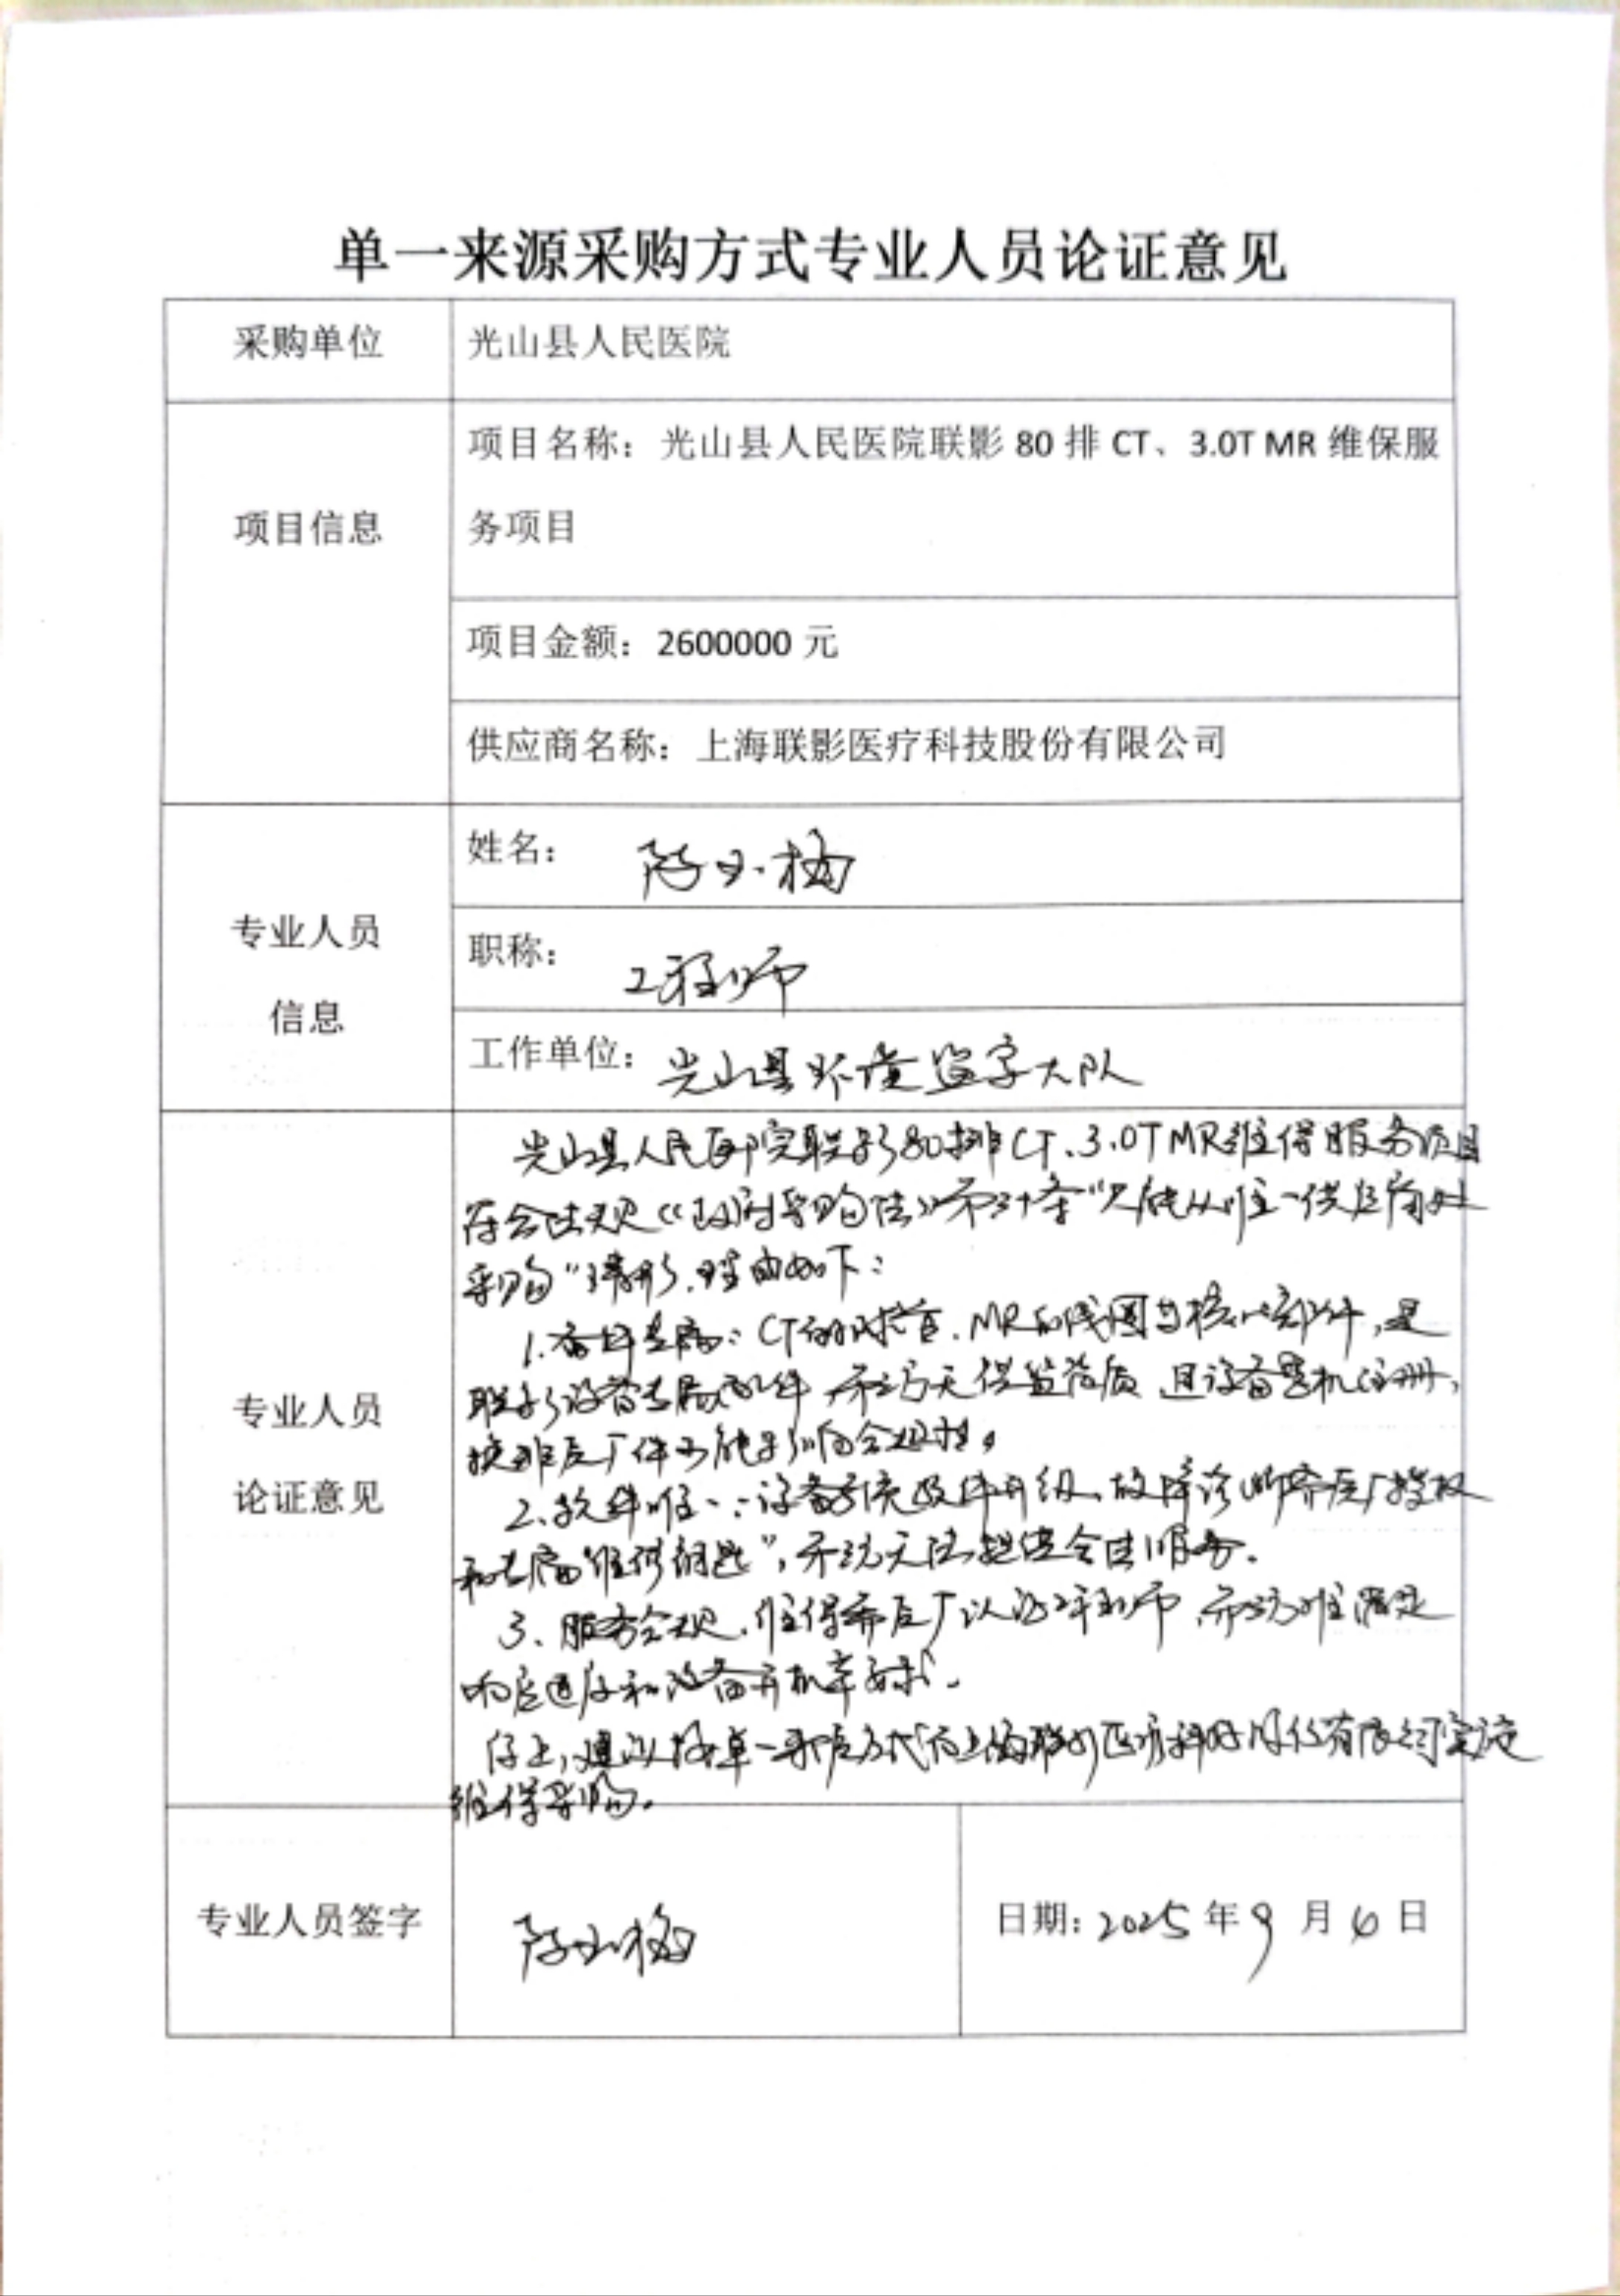 单一来源采购方式专业人员论证意见
采购单位
光山县人民医院
项目信息
项目名称：光山县人民医院联影 80 排 CT、3.0T MR 维保服
务项目
项目金额：2600000 元
供应商名称：上海联影医疗科技股份有限公司
专业人员
信息
姓名：陈玉梅
职称：工程师
工作单位：光山县环境监察大队
专业人员
论证意见
光山县人民医院联影80排CT、3.0TMR维保服务项目
符合法规《政府采购法》第31条“只能从唯一供应商处
采购”情形，理由如下：
1.备件专属：CT的球管、MR的线圈等核心部件，是
联影设备专属配件，第三方无供货资质，且设备整机注册，
换非原厂件可能影响合规性。
2、软件唯一：设备系统软件升级、故障诊断需原厂授权
和专属“维修钥匙”，第三方无法提供合法服务。
3、服务合规，维保需原厂认证工程师，第三方难满足
响应速度和设备开机率要求。
综上，建议按单一来源方式向上海联影医疗科技股份有限公司实施
维保采购。
专业人员签字
陈玉梅
日期：2025 年 9 月 6 日